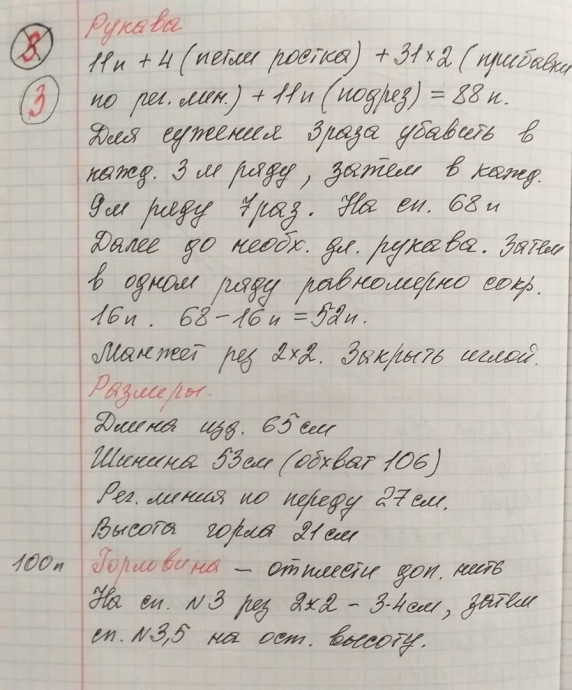 Рукава
8
11п + 4 (петли ростка) + 31×2 (прибавки
3
по рег. лин.) + 11п (подрез) = 88п.
Для сужения 3 раза убавить в
кажд. 3м ряду, затем в кажд.
9м ряду 7 раз. На сп. 68п
Далее до необх. дл. рукава. Затем
в одном ряду равномерно сокр.
16п. 68-16п = 52п.
Манжет рез 2×2. Закрыть иглой.
Размеры.
Длина изд. 65см
Шинина 53см (обхват 106)
Рег. линия по переду 27см.
Высота горла 21см
100п Горловина – отплести доп. нить
На сп. №3 рез 2×2 – 3-4см, затем
сп. №3,5 на ост. высоту.